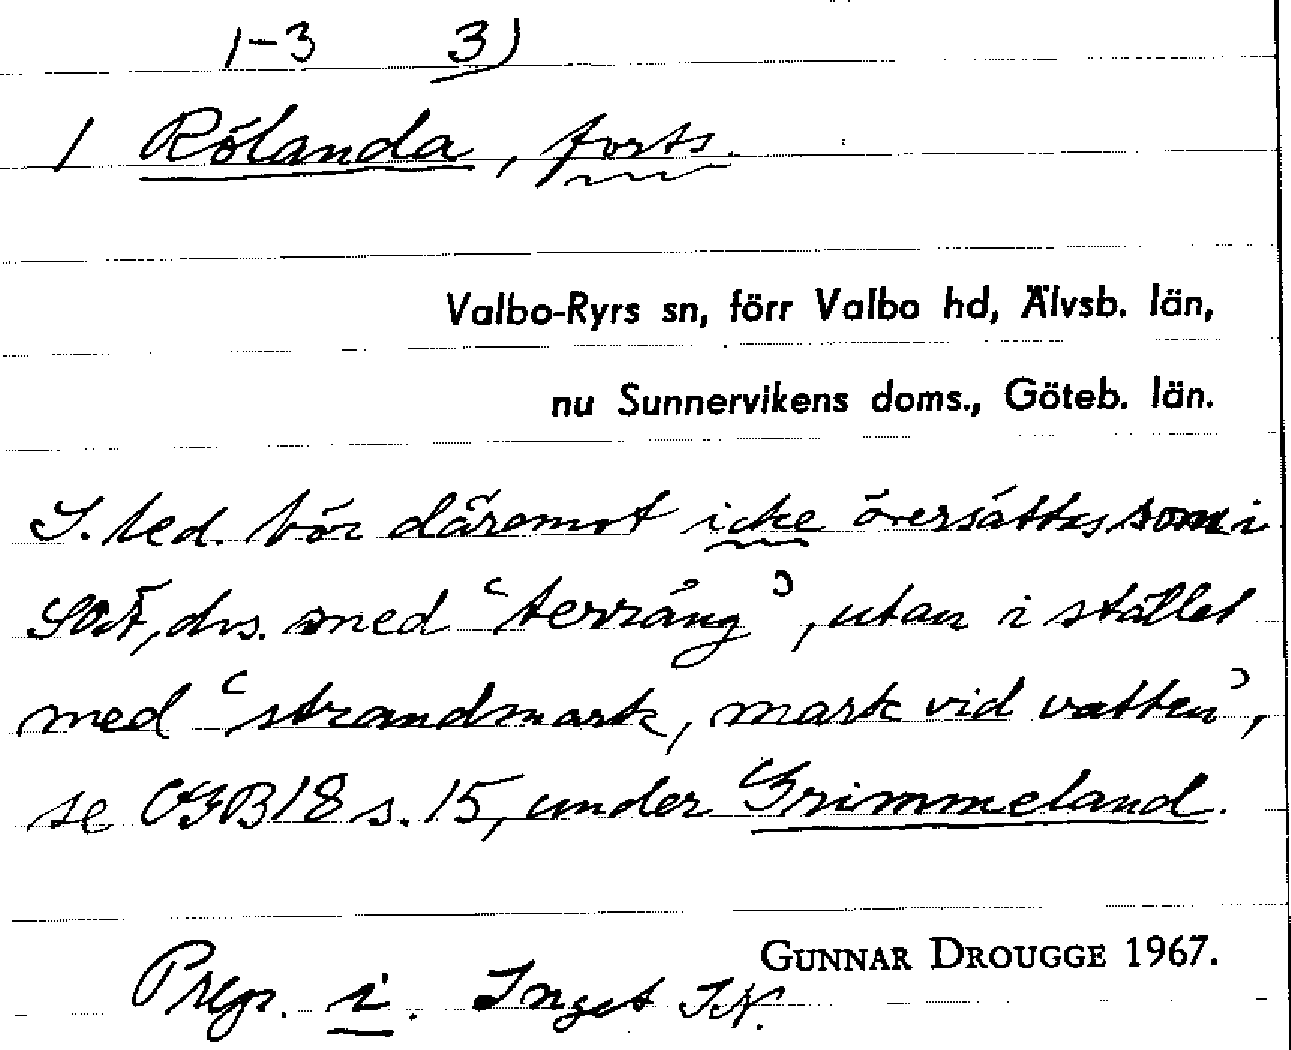 1-3 3)
1 Rölanda, forts.
Valbo-Ryrs sn, förr Valbo hd, Älvsb. län,
nu Sunnervikens doms., Göteb. län.
S. led. bör däremot icke översättas som i
SOÄ, dvs. med ‘terräng’, utan i stället
med ‘strandmark, mark vid vatten’,
se OGB 18 s. 15, under Grimmeland.
GUNNAR DROUGGE 1967.
Prep. i. Inget IN.